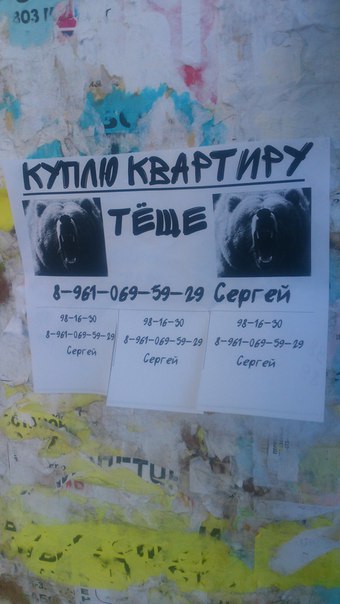 803
КУПЛЮ КВАРТИРУ
ТЁЩЕ
8-961-069-59-29 Сергей
98-16-30
8-961-069-59-29
Сергей
98-16-30
8-961-069-59-29
Сергей
98-16-30
8-961-069-59-29
Сергей